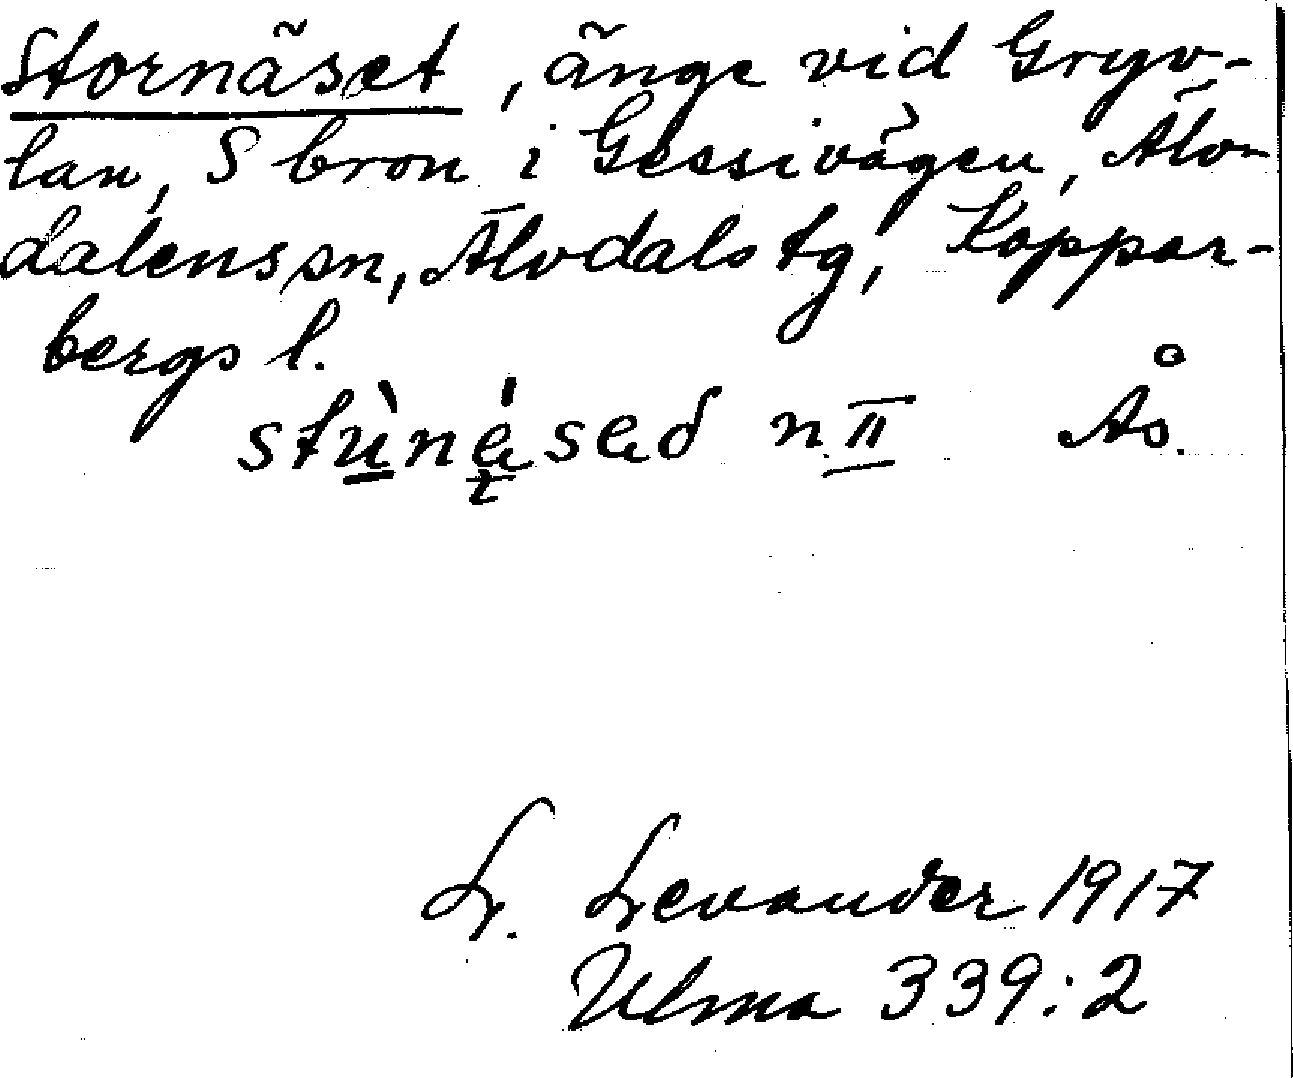 Stornäset, änge vid Gryv-
lan, S bron i Gessivågen, Älv-
dalens sn, Älvdals tg, Koppar-
bergs l.
stùnésed n. II Ås.
L. Levander 1917
Ulma 339:2